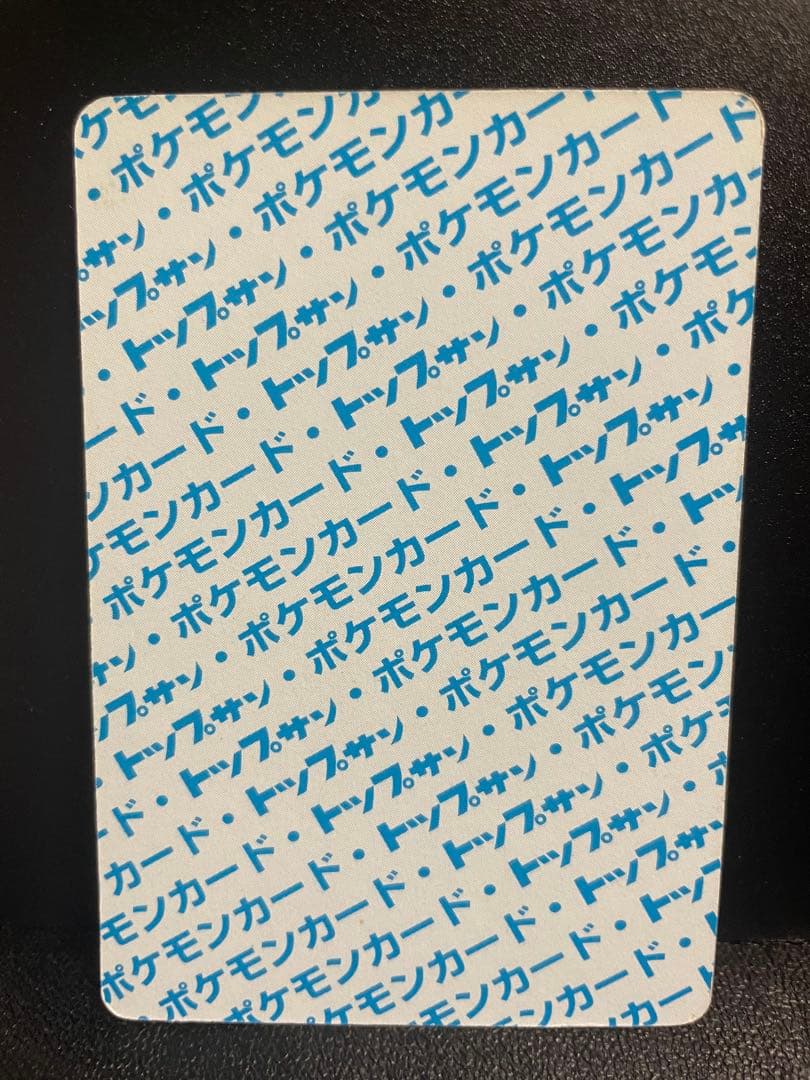 ケモン
・ポケモンカ
プサン・ポケモンカ
ップサン・ポケモンカー
・トップサン・ポケモンカード
ード・トップサン・ポケモンカード
ンカード・トップサン・ポケモンカー
ケモンカード・トップサン・ポケモン
・ポケモンカード・トップサン・ポケ
ン・ポケモンカード・トップサン・
プサン・ポケモンカード・トップサ
トップサン・ポケモンカード・トップ
・トップサン・ポケモンカード・
ード・トップサン・ポケモンカー
カード・トップサン・ポケモン
モンカード・トップサン・ポケ
ポケモンカード・トップサン・
・ポケモンカード・トップサ
ポケモンカード・トップ
ポケモンカード・
ンカード